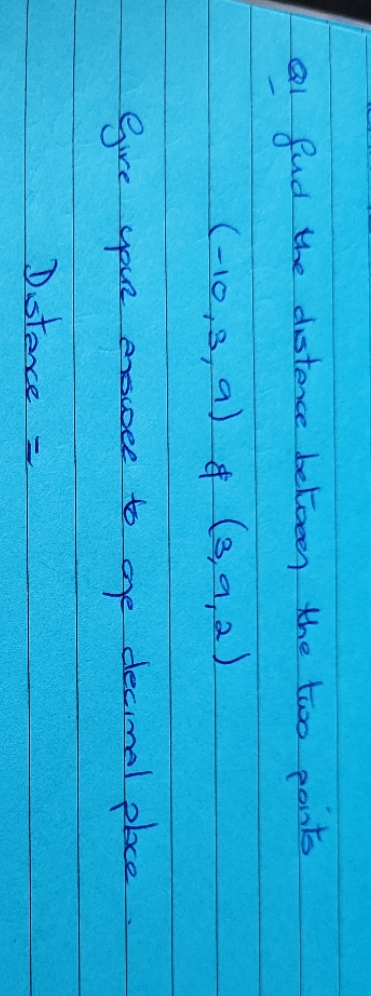 Q1 find the distance between the two points
(-10, 3, 9) & (3, 9, 2)
Give your answer to one decimal place.
Distance =